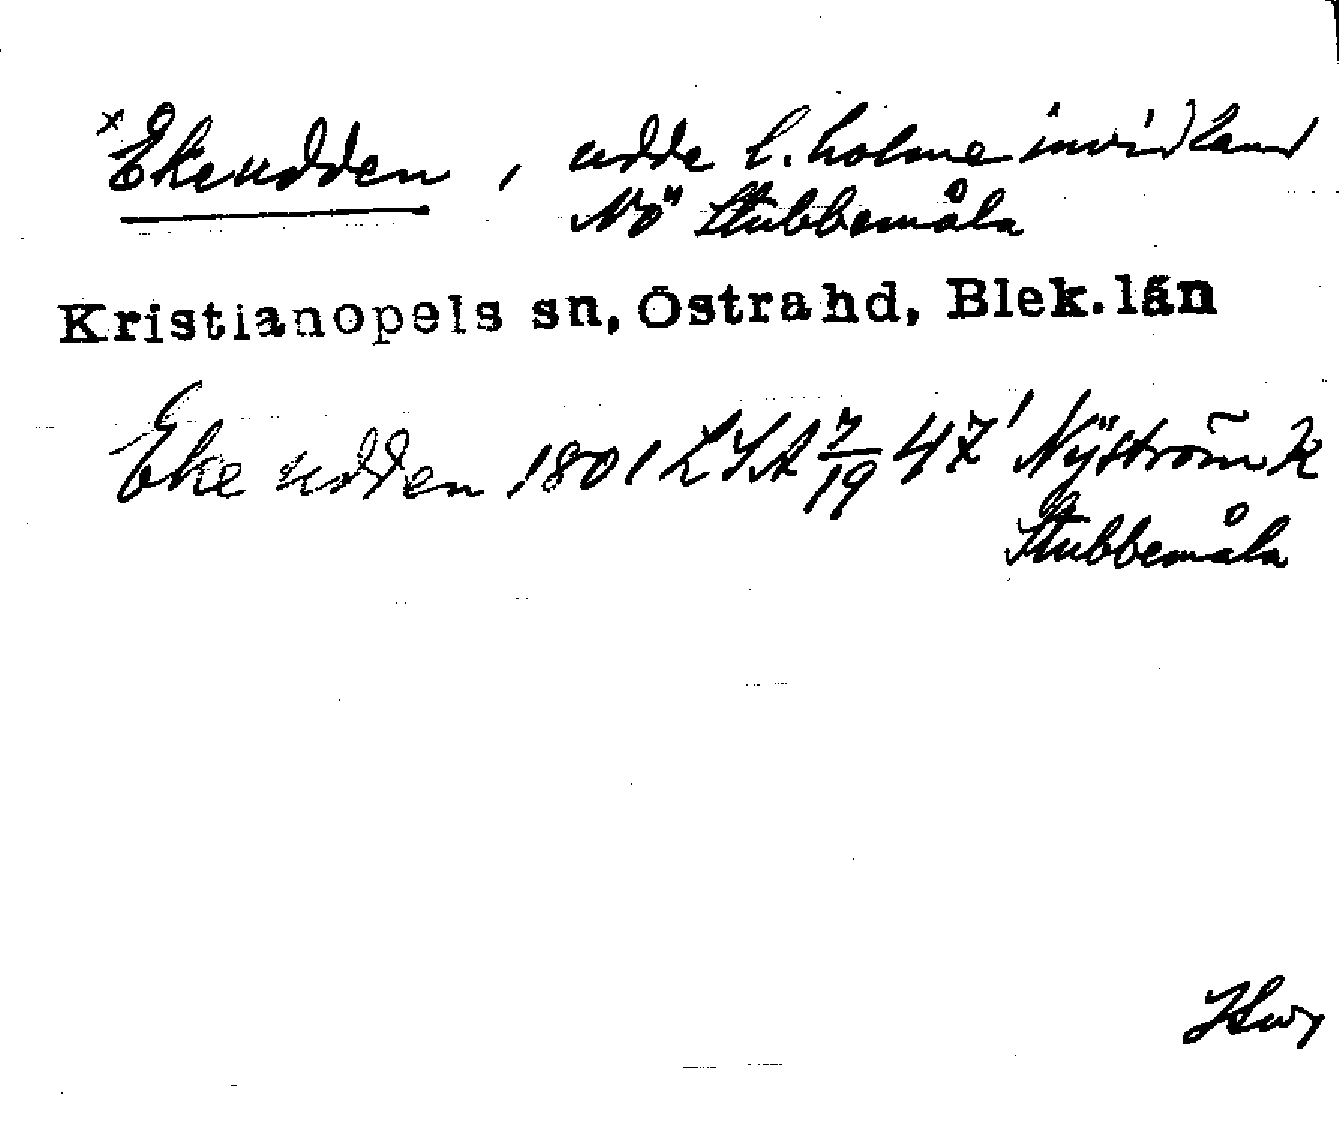 x Ekeudden, udde l. holme invid land
NÖ Stubbemåla
Kristianopels sn, Östra hd, Blek. län
Eke udden 1801 LSA 7/19 47' Nyström k
Stubbemåla